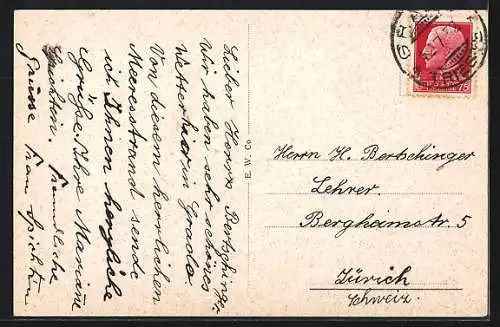 Lieber Herr Bertschinger.
Wir haben sehr schönes
Wetter hier in Grado
Von diesem herrlichen
Meeresstrand sende
ich Ihnen herzliche
Grüße. Ihre Mariane
Freundliche
Grüsse Frau
E. W. Co
75
Herrn H. Bertschinger
Lehrer.
Bergheimstr. 5
Zürich
Schweiz.